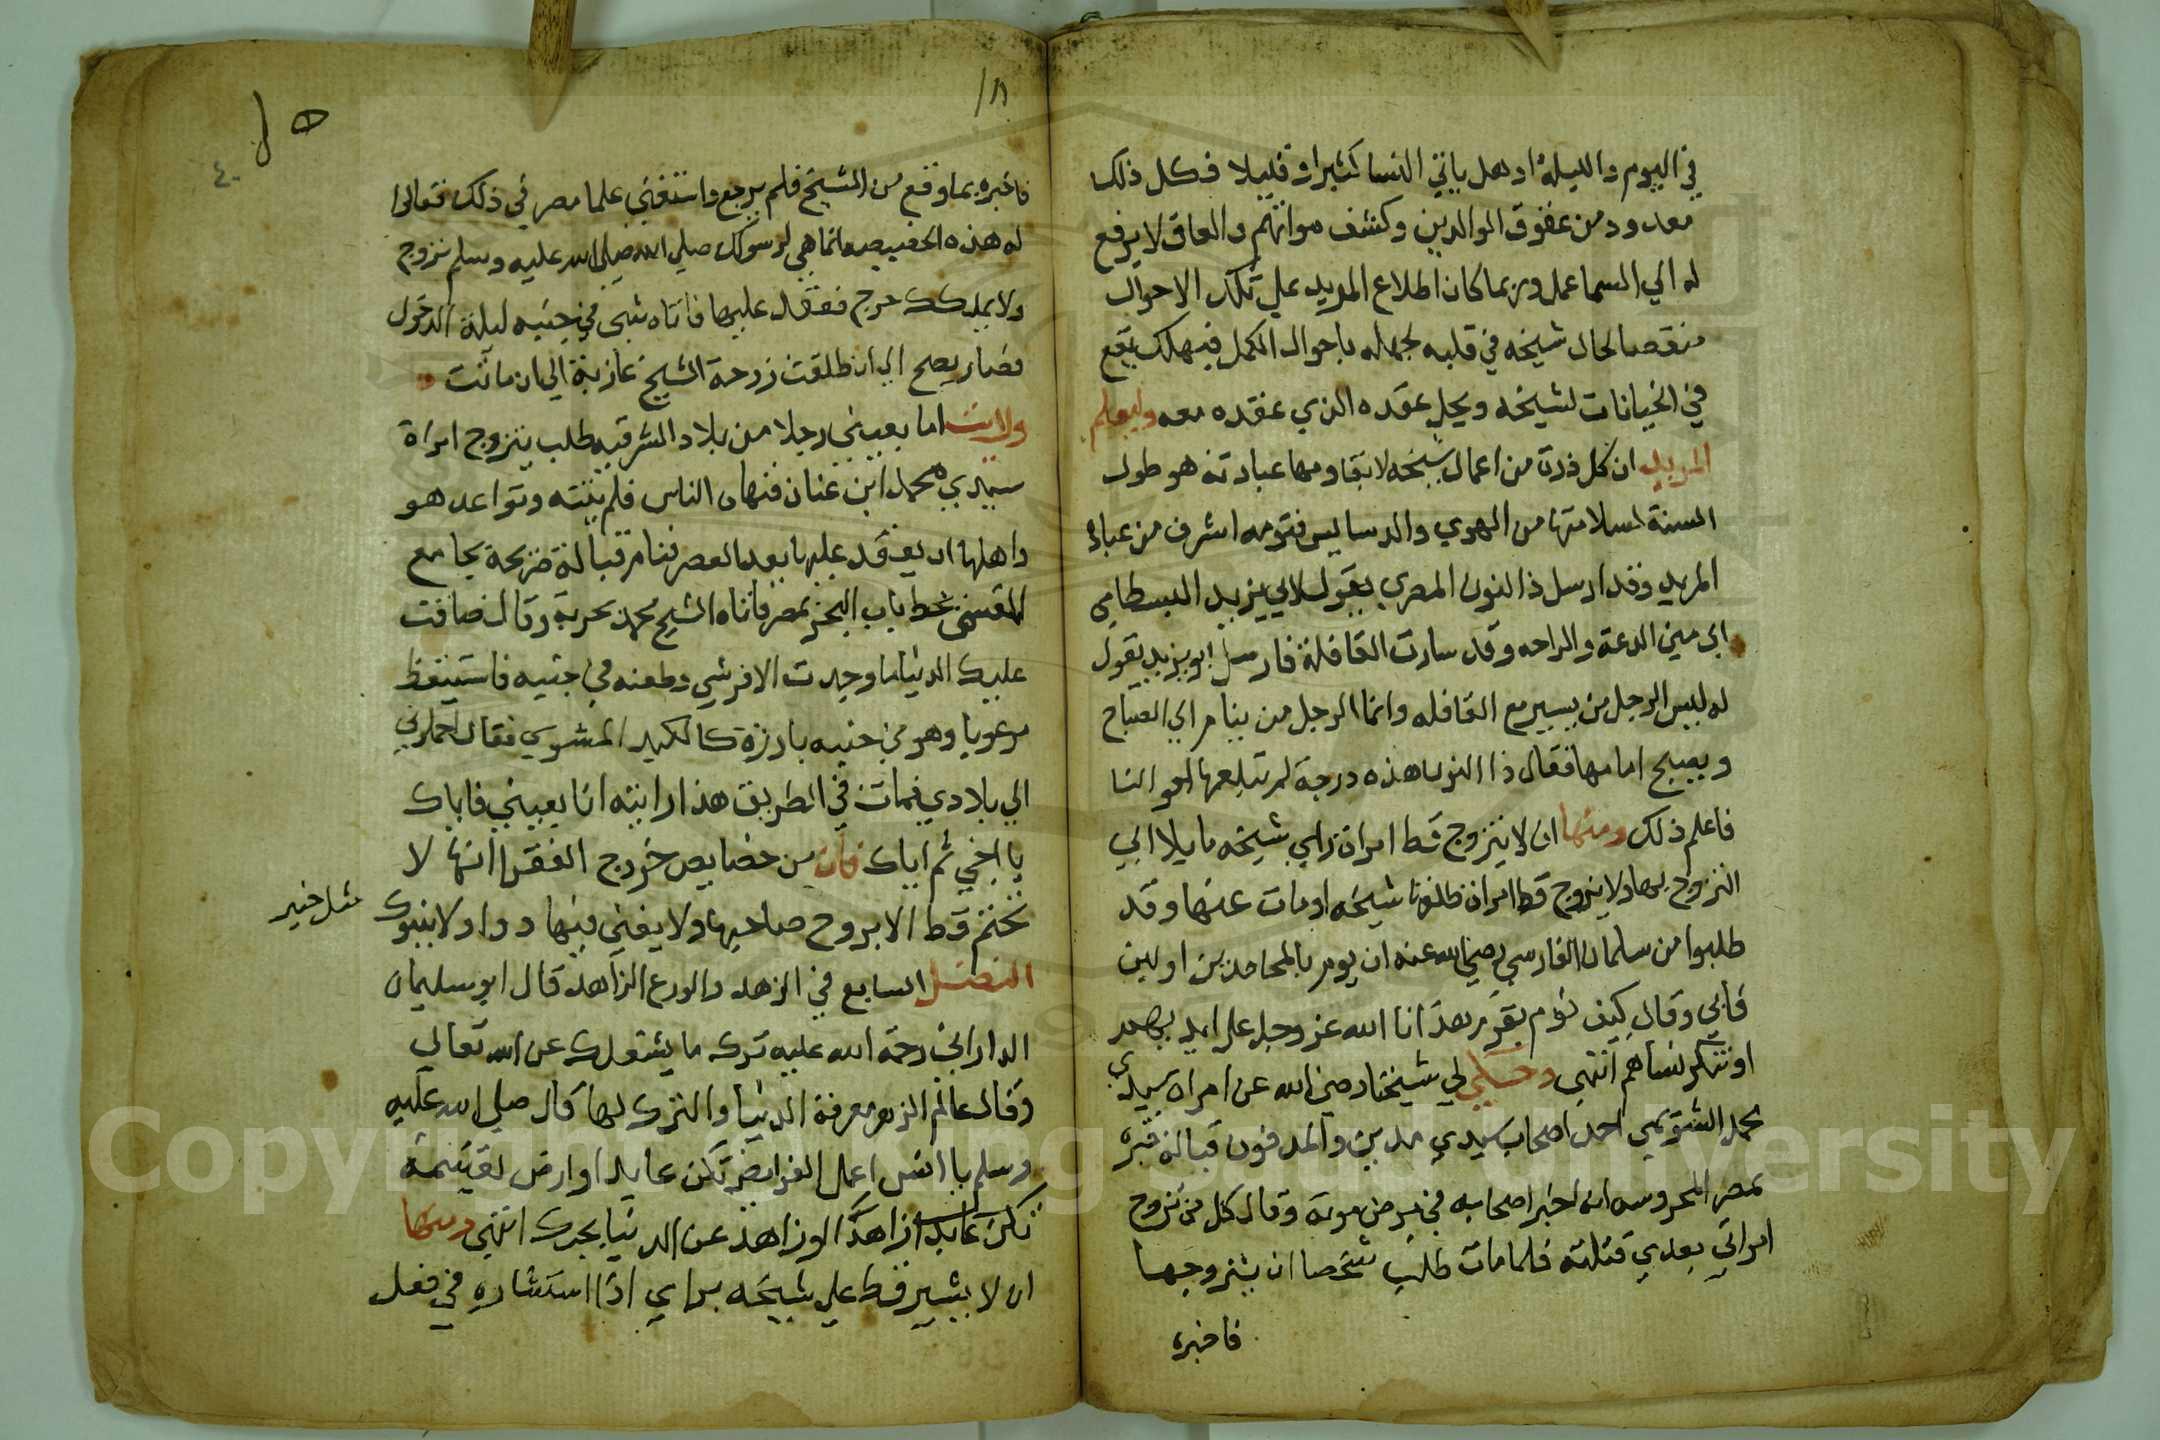 في اليوم والليلة او هل ياتي النسا كثيرا وقليلا فكل ذلك
معدود من عقوق الوالدين وكشف سواتهم والعاق لا يرفع
له الي السما عمل وربما كان اطلاع المريد علي تلك الاحوال
منقصا لحال شيخه في قلبه لجهله باحوال الكمل فيهلك يقع
في الخيانات لشيخه ويحل عقده الذي عقده معه وليعلم
المريد ان كل ذرة من اعمال شيخه لا يقاومها عبادته هو طول
السنة لسلامتها من الهوي والدسايس فنومه اشرف من عبادة
المريد وقد ارسل ذا النون المصري يقول لابي يزيد البسطامي
الي متي الدعة والراحه وقد سارت القافلة فارسل ابو يزيد يقول
له ليس الرجل من يسير مع القافله وانما الرجل من ينام الي الصباح
ويصبح امامها فقال ذا النون هذه درجة لم تبلغها احوالنا
فاعلم ذلك ومنها ان لا يتزوج قط امراة راي شيخه مايلا الي
التزوج بها ولا يتزوج قط امراة طلقها شيخه او مات عنها وقد
طلبوا من سلمان الفارسي رضي الله عنه ان يوم بالمحامدين اولين
فابي وقال كيف نؤم بقوم هدانا الله عز وجل علي ايديهم
او ننكح نساهم انتهي وحكي لي شيخنا رضي الله عن امراة سيدي
محمد الشويمي احد اصحاب سيدي مدين والمدفون قبالة قبره
بمصر المحروسه انه اخبر اصحابه في مرض موته وقال كل من تزوج
امراتي بعدي قتلته فلما مات طلب شخصا ان يتزوجها
فاخبره
١٨
٤٠
فاخبره بما وقع من الشيخ فلم يرجع واستفتي علما مصر في ذلك فقالوا
له هذه الخصيصه انما هي لرسول صلي الله صلي الله عليه وسلم تزوج
ولا عليك حرج فعقد عليها فاتاه شي في جنبه ليلة الدخول
فصار يصح الي ان طلقت زوجة الشيخ عازبة الي ان ماتت
ولا رايت انا بعيني رجلا من بلاد الشرقيه طلب يتزوج امراة
سيدي محمد ابن عنان فنهاه الناس فلم ينته وتواعد هو
واهلها ان يعقد عليها بعد العصر فنام قبالة ضريحة بجامع
المقسم بخط باب البحر بمصر فاتاه الشيخ محمد بحربة وقال ضاقت
عليك الدنيا ما وجدت الا فرشي وطعنه في جنبه فاستيقظ
مرعوبا وهو في جنبه بارزة كالكبد المشوي فقال احملوني
الي بلادي فمات في الطريق هذا رايته انا بعيني فاياك
يا اخي ثم اياك فان من خصايص خروج الفقرا انها لا
تختم قط الا بروح صاحبها ولا يغني فيها دوا ولا ينبوك
مثل خبير
الفصل السابع في الزهد والورع الزاهد قال ابو سليمان
الداراني رحمة الله عليه ترك ما يشغلك عن الله تعالي
وقال عالم الزهد معرفة الدنيا والترك لها قال صلي الله عليه
وسلم يا انس اعمل الفرايض تكن عابدا وارض بقسمة
تكن زاهدا والزاهد عن الدنيا بجدك انتهي ومنها
ان لا يشير قط علي شيخه براي اذا استشاره في فعل
Copyright © King Saud University